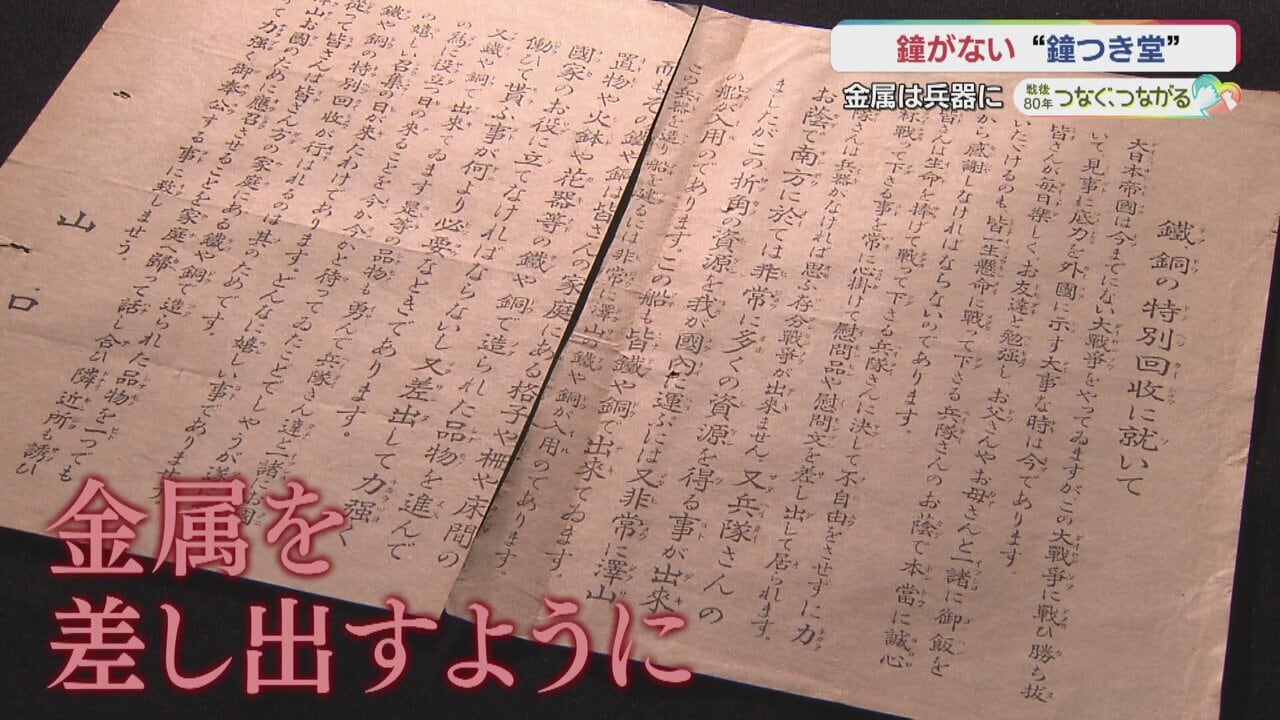 鐘がない “鐘つき堂”
金属は兵器に
戦後80年 つなぐ、つながる
鐵銅の特別回收に就いて
大日本帝國は今までにない大戰爭をやってゐますがこの大戰爭に戰ひ勝ち抜
いて、見事に底力を外國に示す大事な時は今であります
皆さんが毎日樂しくお友達と勉强しお父さんやお母さんと一諸に御飯を
いたゞけるのも皆一生懸命に戰って下さる兵隊さんのお陰で本當に誠心
から感謝しなければならないのであります。
皆さんは生命を捧げて戰って下さる兵隊さんに決して不自由をさせずに力
杯戰って下さる事を常に心掛けて慰問品や慰問文を差し出して居られます。
隊さんは兵器がなければ思ふ存分戰爭が出來ません、又兵隊さんの
お陰で南方に於ては非常に多くの資源を得る事が出來
ましたがこの折角の資源を我が國內に運ぶには又非常に澤山
の船が入用のであります。この船も皆鐵や銅で出來てゐます。
この兵器を造り船を造るには非常に澤山の鐵や銅が入用のであります。
而も其の鐵や銅は皆さんの家庭にある格子や柵や床間の
置物や火鉢や花器等の鐵や銅で造られた品物を進んで
國家のお役に立てなければならないし又差出して力强く
働いて貰ふ事が何より必要なときであります。
又鐵や銅 出來てゐます是等の品物も勇んで兵隊さん達と一諸にお國
の爲に役立つ日の來ることを今か今かと待ってゐたことでしやうが遂に
の嬉しい召集の日が來たわけであります。どんなに嬉しい事でありませう
鐵や銅の特別回收が行けれるのは其のためです。
從って皆さんは皆さん方の家庭にある鐵や銅で造られた品物を一つでも
澤山お國のために應召させることを家庭へ歸って話し合ひ隣近所も誘ひ
って力强い御奉公する事に致しませう
山口
金属を
差し出すように